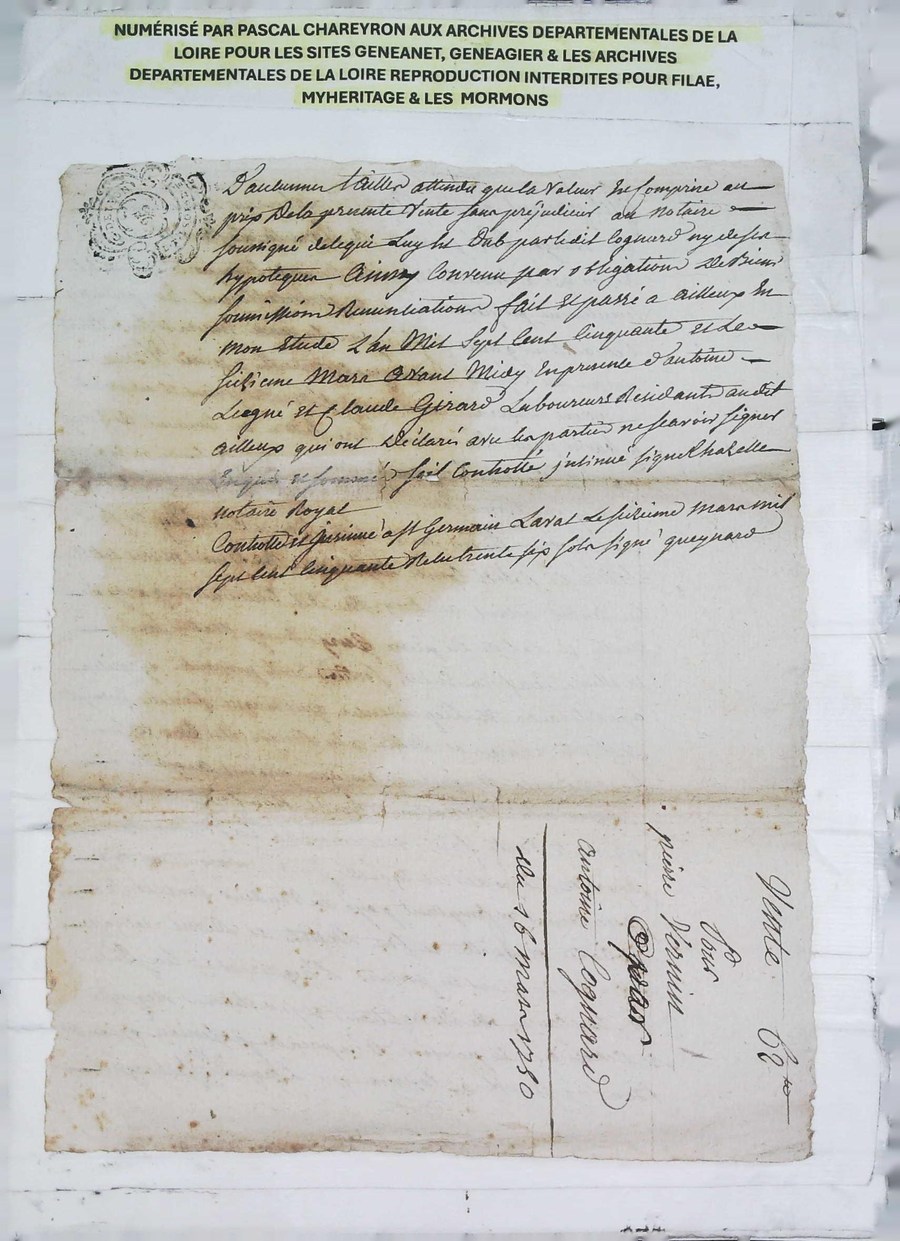 NUMÉRISÉ PAR PASCAL CHAREYRON AUX ARCHIVES DEPARTEMENTALES DE LA
LOIRE POUR LES SITES GENEANET, GENEAGIER & LES ARCHIVES
DEPARTEMENTALES DE LA LOIRE REPRODUCTION INTERDITES POUR FILAE,
MYHERITAGE & LES MORMONS
attendu que la valeur En Comprise au
prix De la presente Vente sans préjudicier au notaire
soussigné de ce qui Luy est Dub par ledit Cognard ny de ses
hypoteques Ainsy Convenu par obligation De Biens
soumissions Renunciations fait Et passé a ailleux En
mon Etude L'an Mil Sept Cent Cinquante et Le
sizieme Mars avant Midy En presence d'antoine
et Claude Girard Laboureurs Residants audit
ailleux qui ont Déclarés avec les parties ne scavoir signer
Enquis et sommé soit Controllé, jnsinué signe Chazelle
notaire Royal
Controllé et jnsinué a St Germain Laval Le sizieme mars mil
sept Cent Cinquante Recu trente six sols signé queynard
Vente 62
Pour
pierre Vernin
antoine Cognard
du 16 mars 1750